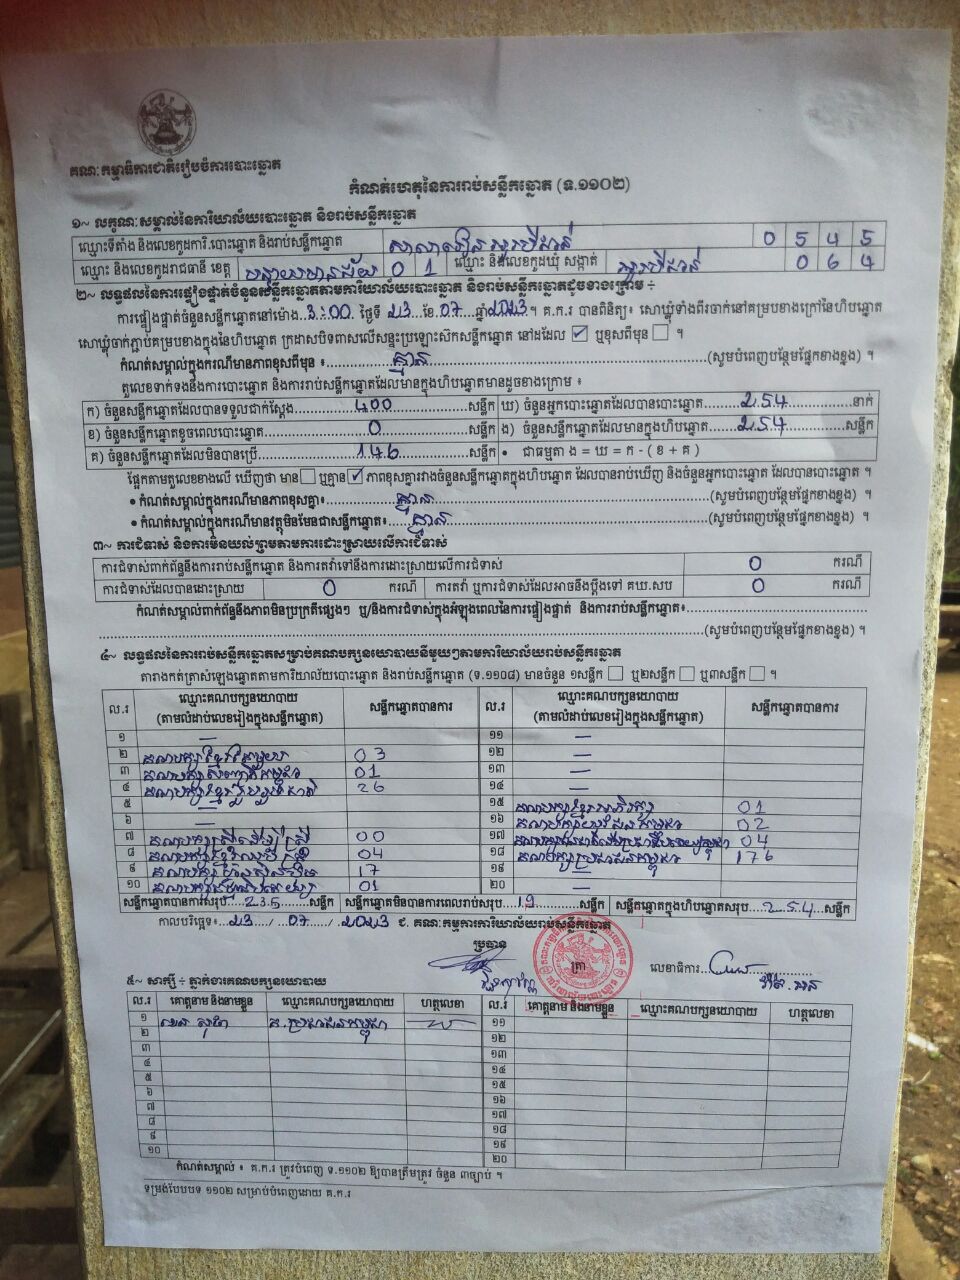 គណៈកម្មាធិការជាតិរៀបចំការបោះឆ្នោត
កំណត់ហេតុនៃការរាប់សន្លឹកឆ្នោត (ទ.១១០២)
១~ លក្ខណៈសម្គាល់នៃការិយាល័យបោះឆ្នោត និងរាប់សន្លឹកឆ្នោត
ឈ្មោះទីតាំង និងលេខកូដការិ.បោះឆ្នោត និងរាប់សន្លឹកឆ្នោត 0 5 4 5
ឈ្មោះ និងលេខកូដរាជធានី ខេត្ត បន្ទាយមានជ័យ 0 1 ឈ្មោះ និងលេខកូដឃុំ សង្កាត់ 0 6 4
២~ លទ្ធផលនៃការផ្ទៀងផ្ទាត់ចំនួនសន្លឹកឆ្នោតតាមការិយាល័យបោះឆ្នោត និងរាប់សន្លឹកឆ្នោតដូចខាងក្រោម ÷
ការផ្ទៀងផ្ទាត់ចំនួនសន្លឹកឆ្នោតនៅម៉ោង..3:00. ថ្ងៃទី 23 ខែ.07 ឆ្នាំ 2023។ គ.ក.រ បានពិនិត្យ៖ សោឃ្លុំទាំងពីរចាក់នៅគម្របខាងក្រៅនៃហិបឆ្នោត
សោឃ្លុំចាក់ភ្ជាប់គម្របខាងក្នុងនៃហិបឆ្នោត ក្រដាសបិទពាសលើសន្ទះប្រឡោះស៊កសន្លឹកឆ្នោត នៅដដែល ☑ ឬខុសពីមុន ☐ ។
កំណត់សម្គាល់ក្នុងករណីមានភាពខុសពីមុន ៖ គ្មាន (សូមបំពេញបន្ថែមផ្នែកខាងខ្នង) ។
តួលេខទាក់ទងនឹងការបោះឆ្នោត និងការរាប់សន្លឹកឆ្នោតដែលមានក្នុងហិបឆ្នោតមានដូចខាងក្រោម ៖
ក) ចំនួនសន្លឹកឆ្នោតដែលបានទទួលជាក់ស្ដែង 400 សន្លឹក ឃ) ចំនួនអ្នកបោះឆ្នោតដែលបានបោះឆ្នោត 254 នាក់
ខ) ចំនួនសន្លឹកឆ្នោតខូចពេលបោះឆ្នោត 0 សន្លឹក ង) ចំនួនសន្លឹកឆ្នោតដែលមានក្នុងហិបឆ្នោត 254 សន្លឹក
គ) ចំនួនសន្លឹកឆ្នោតដែលមិនបានប្រើ 146 សន្លឹក • ជាធម្មតា ង = ឃ = ក - ( ខ + គ )
ផ្អែកតាមតួលេខខាងលើ ឃើញថា មាន ☐ ឬគ្មាន ☑ ភាពខុសគ្នារវាងចំនួនសន្លឹកឆ្នោតក្នុងហិបឆ្នោត ដែលបានរាប់ឃើញ និងចំនួនអ្នកបោះឆ្នោត ដែលបានបោះឆ្នោត ។
• កំណត់សម្គាល់ក្នុងករណីមានភាពខុសគ្នា៖ គ្មាន (សូមបំពេញបន្ថែមផ្នែកខាងខ្នង) ។
• កំណត់សម្គាល់ក្នុងករណីមានវត្ថុមិនមែនជាសន្លឹកឆ្នោត៖ គ្មាន (សូមបំពេញបន្ថែមផ្នែកខាងខ្នង) ។
៣~ ការជំទាស់ និងការមិនយល់ព្រមតាមការដោះស្រាយលើការជំទាស់
ការជំទាស់ពាក់ព័ន្ធនឹងការរាប់សន្លឹកឆ្នោត និងការតវ៉ាទៅនឹងការដោះស្រាយលើការជំទាស់ 0 ករណី
ការជំទាស់ដែលបានដោះស្រាយ 0 ករណី ការតវ៉ា ឬការជំទាស់ដែលអាចនឹងប្ដឹងទៅ គឃ.សប 0 ករណី
កំណត់សម្គាល់ពាក់ព័ន្ធនឹងភាពមិនប្រក្រតីផ្សេងៗ ឬ/និងការជំទាស់ក្នុងអំឡុងពេលនៃការផ្ទៀងផ្ទាត់ និងការរាប់សន្លឹកឆ្នោត៖
(សូមបំពេញបន្ថែមផ្នែកខាងខ្នង) ។
៤~ លទ្ធផលនៃការរាប់សន្លឹកឆ្នោតសម្រាប់គណបក្សនយោបាយនីមួយៗតាមការិយាល័យរាប់សន្លឹកឆ្នោត
តារាងកត់ត្រាសំឡេងឆ្នោតតាមការិយាល័យបោះឆ្នោត និងរាប់សន្លឹកឆ្នោត (ទ.១១០៨) មានចំនួន ១សន្លឹក ☐ ឬ២សន្លឹក ☐ ឬ៣សន្លឹក ☐ ។
ល.រ ឈ្មោះគណបក្សនយោបាយ (តាមលំដាប់លេខរៀងក្នុងសន្លឹកឆ្នោត) សន្លឹកឆ្នោតបានការ ល.រ ឈ្មោះគណបក្សនយោបាយ (តាមលំដាប់លេខរៀងក្នុងសន្លឹកឆ្នោត) សន្លឹកឆ្នោតបានការ
១ — ១១ —
២ គណបក្សខ្មែរតែមួយ 03 ១២ —
៣ 01 ១៣ —
៤ គណបក្សខ្មែររួបរួមជាតិ 26 ១៤ —
៥ — ១៥ គណបក្សខ្មែរអភិរក្ស 01
៦ — ១៦ 02
៧ គណបក្សស្ត្រីដើម្បីស្ត្រី 00 ១៧ 04
៨ 04 ១៨ គណបក្សប្រជាជនកម្ពុជា 176
៩ គណបក្សហ្វ៊ុនស៊ិនប៉ិច 17 ១៩ —
១០ 01 ២០ —
សន្លឹកឆ្នោតបានការសរុប 235 សន្លឹក សន្លឹកឆ្នោតមិនបានការពេលរាប់សរុប 19 សន្លឹក សន្លឹកឆ្នោតក្នុងហិបឆ្នោតសរុប 254 សន្លឹក
កាលបរិច្ឆេទ៖ 23 / 07 / 2023 ជ. គណៈកម្មការការិយាល័យរាប់សន្លឹកឆ្នោត
ប្រធាន
ត្រា លេខាធិការ
៥~ សាក្សី ÷ ភ្នាក់ងារគណបក្សនយោបាយ
ល.រ គោត្តនាម និងនាមខ្លួន ឈ្មោះគណបក្សនយោបាយ ហត្ថលេខា ល.រ គោត្តនាម និងនាមខ្លួន ឈ្មោះគណបក្សនយោបាយ ហត្ថលេខា
១ គ.ប្រជាជនកម្ពុជា ១១
២ ១២
៣ ១៣
៤ ១៤
៥ ១៥
៦ ១៦
៧ ១៧
៨ ១៨
៩ ១៩
១០ ២០
កំណត់សម្គាល់ ៖ គ.ក.រ ត្រូវបំពេញ ទ.១១០២ ឱ្យបានត្រឹមត្រូវ ចំនួន ៣ច្បាប់ ។
ទម្រង់បែបបទ ១១០២ សម្រាប់បំពេញដោយ គ.ក.រ